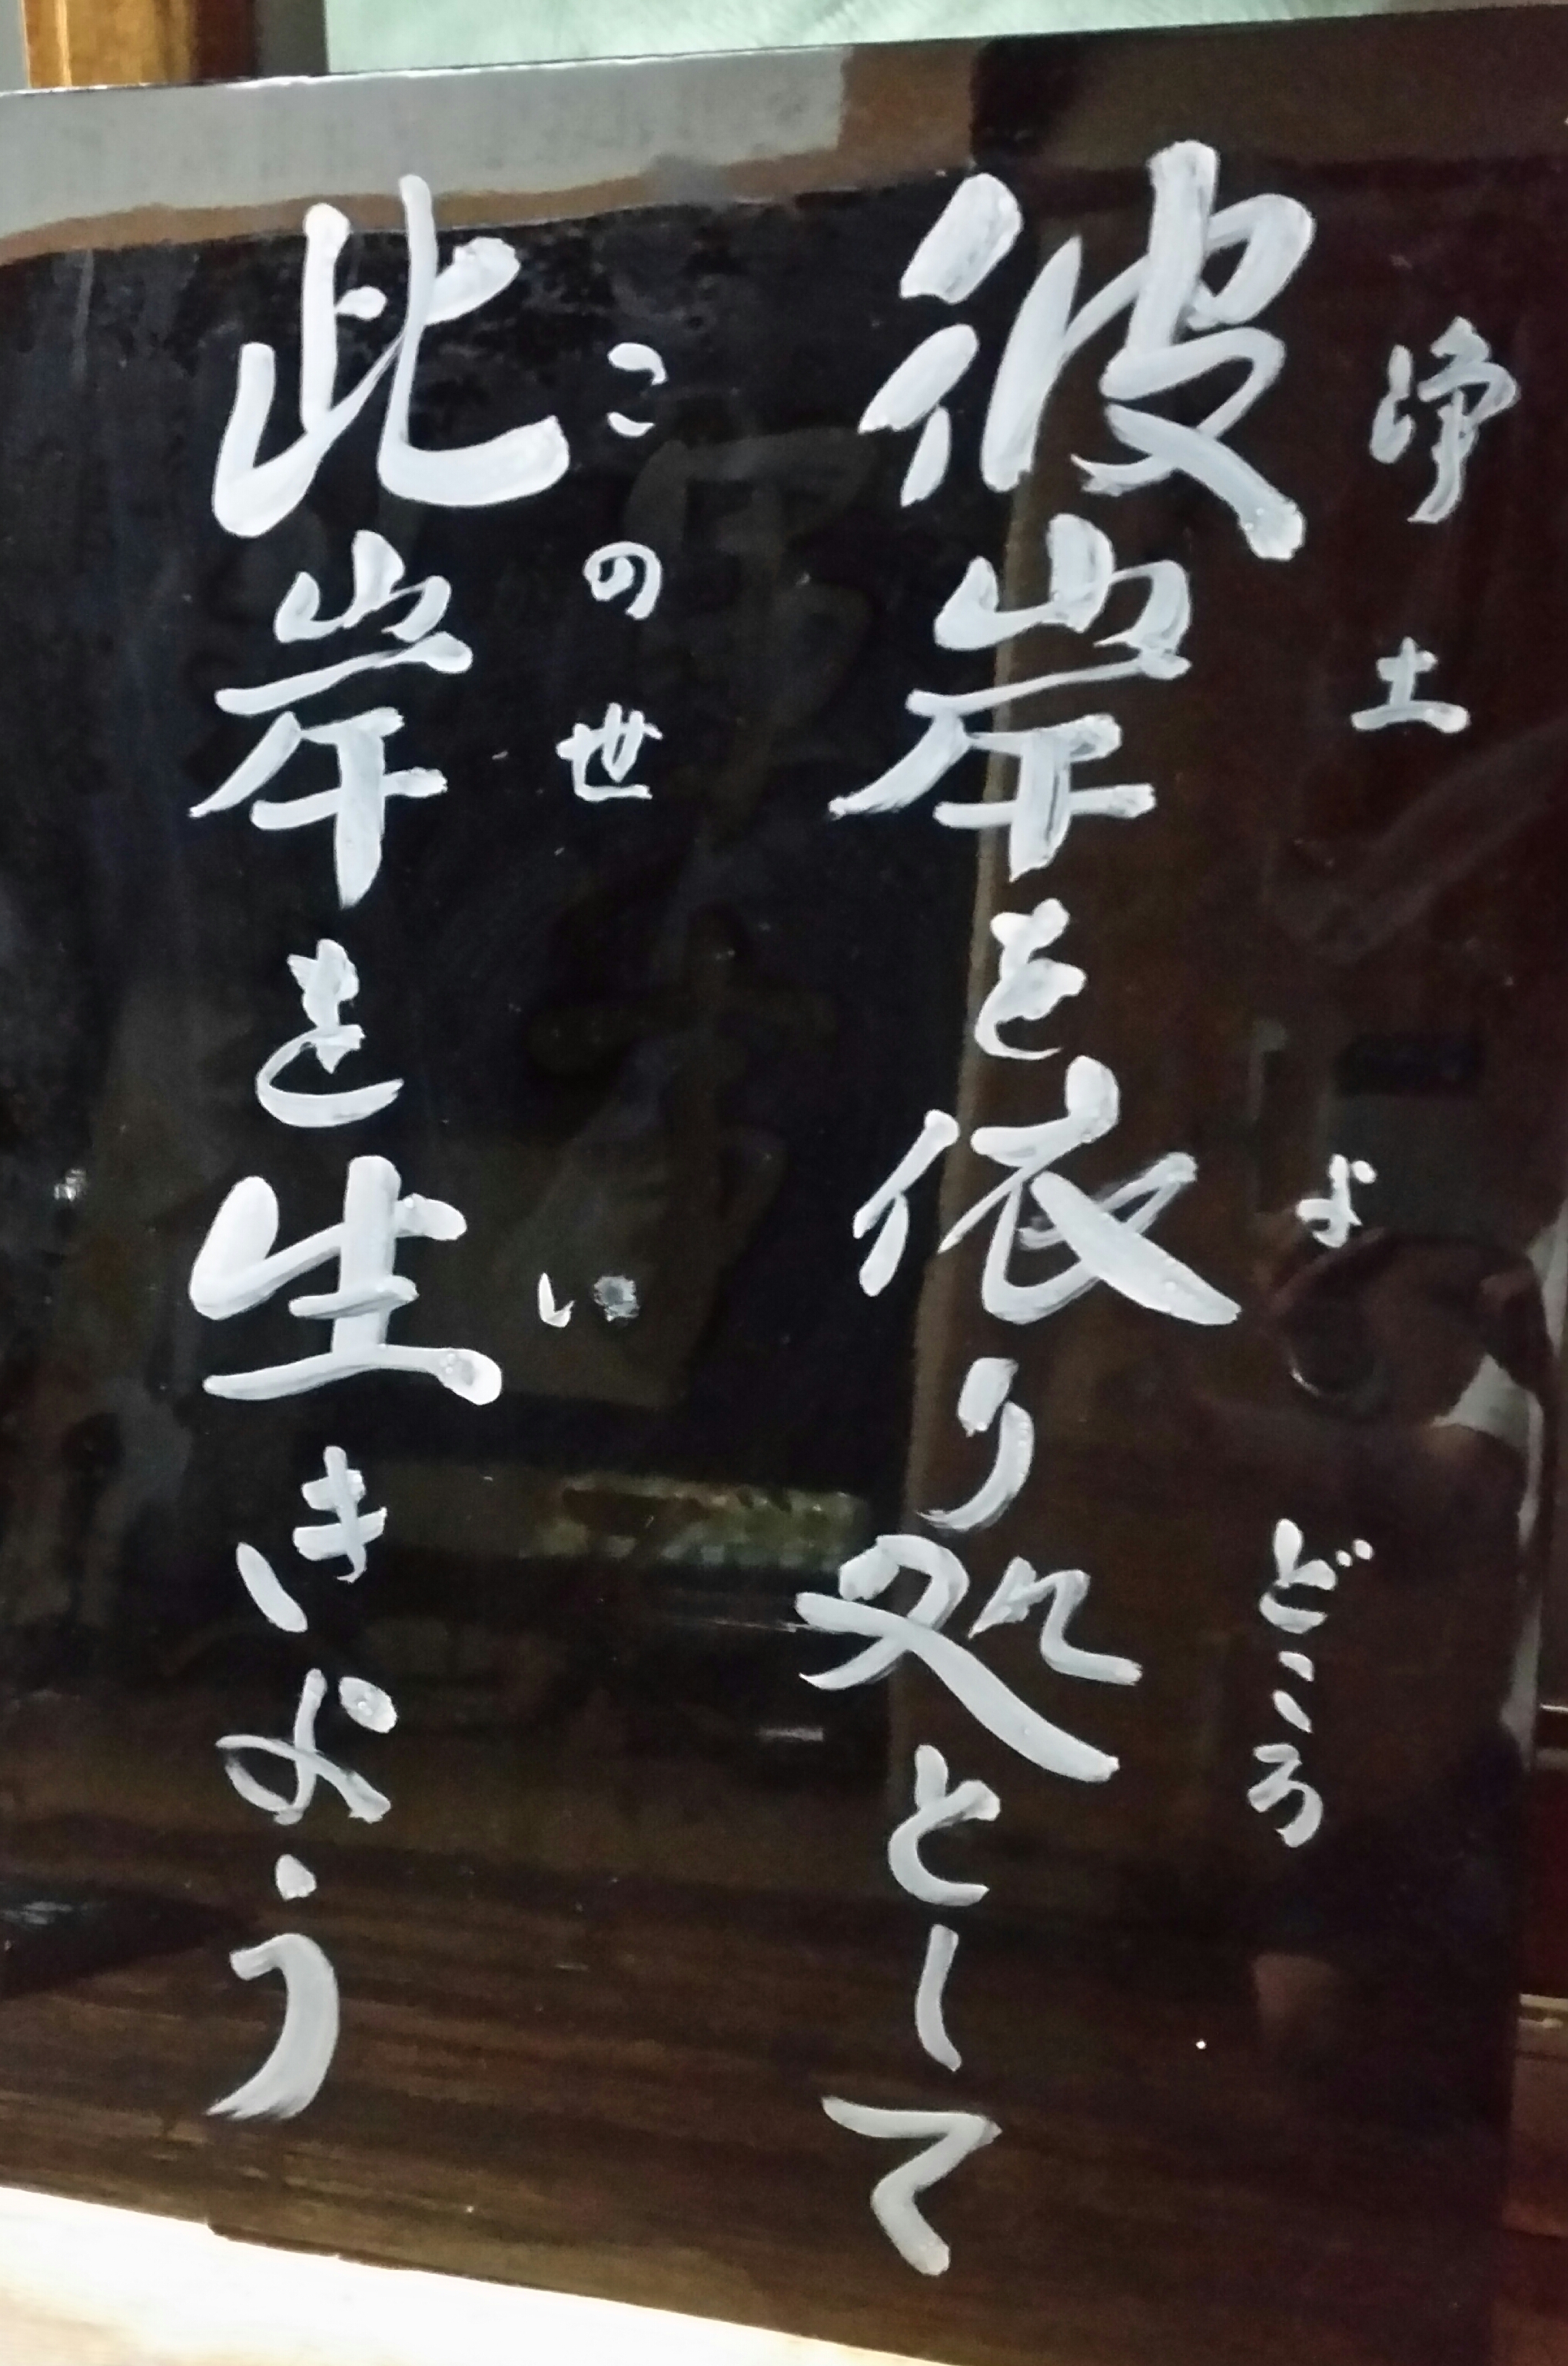 浄土 よ どころ
彼岸を依り処として
この世 い
此岸を生きよう